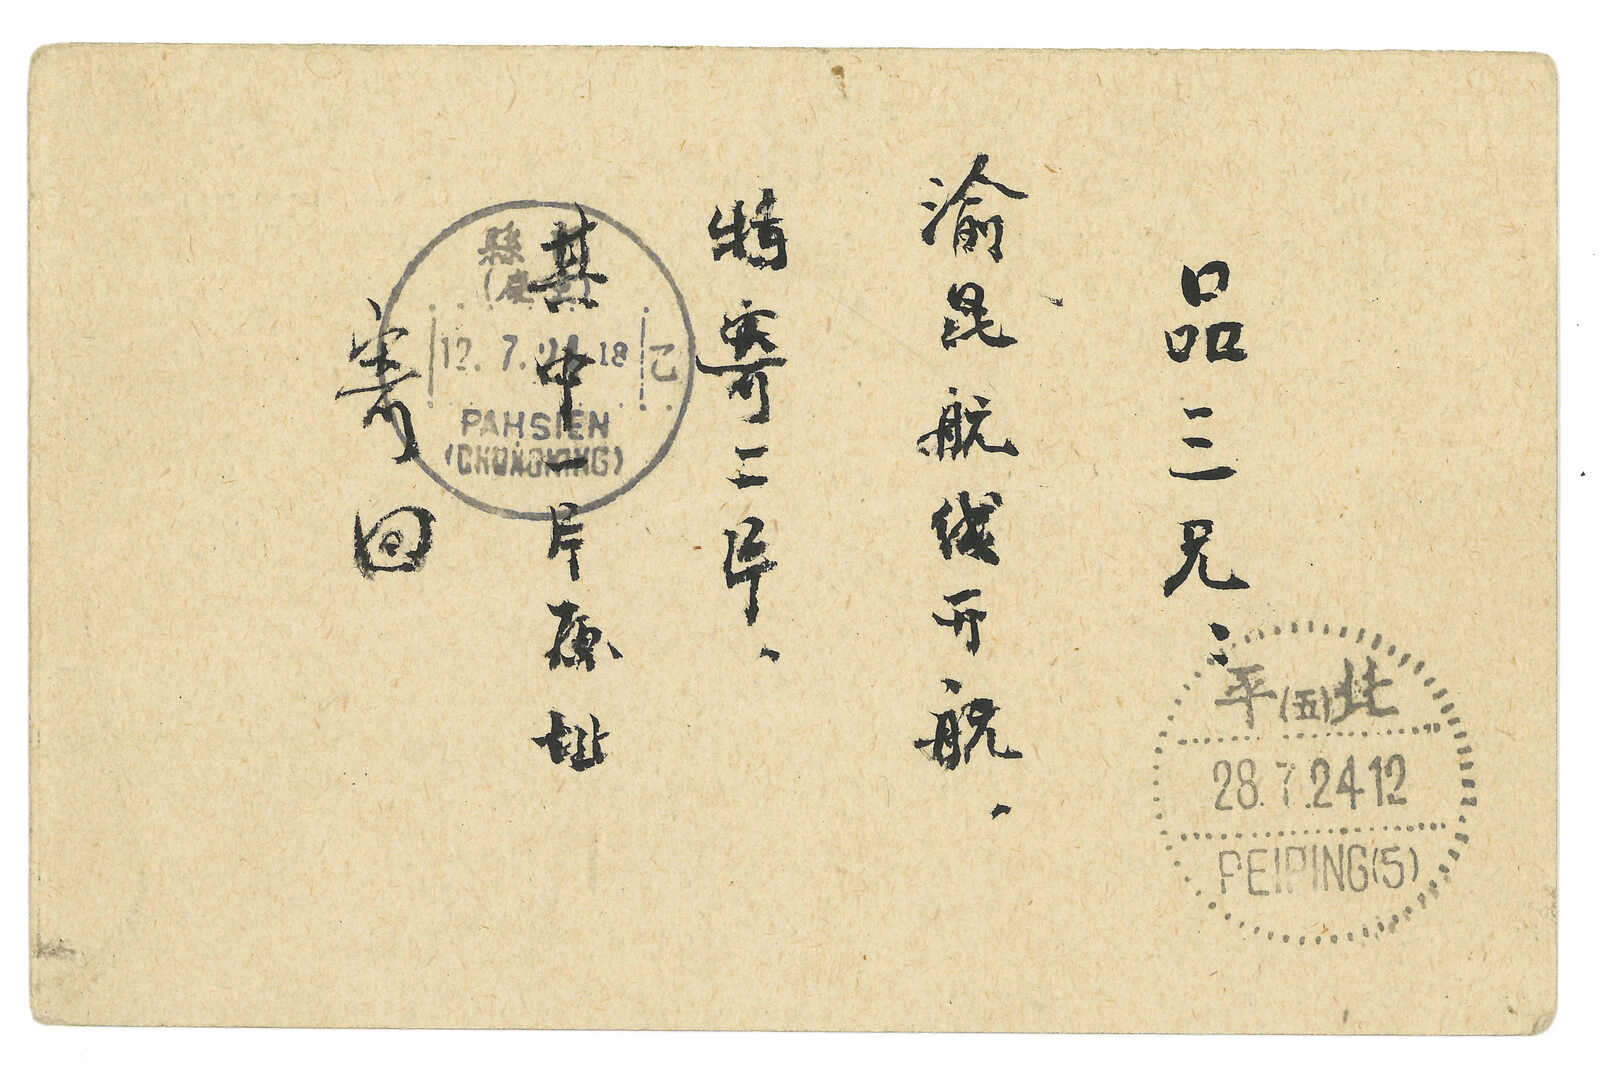 品三兄：
渝昆航线开航．
特寄二片．
其中一片原址
寄回
縣
(慶重)
12. 7. 24 18 乙
PAHSIEN
(CHUNGKING)
平(五)北
28. 7. 24 12
PEIPING(5)